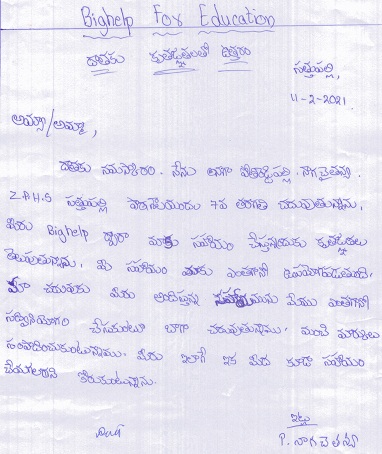 Bighelp For Education
దాతకు కృతజ్ఞతలతో ఉత్తరం
సత్తుపల్లి,
11-2-2021.
అయ్యా/అమ్మా,
దాతకు నమస్కారం. నేను అనగా నాగచైతన్య.
Z.P.H.S సత్తుపల్లి పాఠశాలయందు 7వ తరగతి చదువుతున్నాను.
మీరు Bighelp ద్వారా మాకు సహాయం చేస్తున్నందుకు కృతజ్ఞతలు
తెలుపుతున్నాను. మీ సహాయం మాకు ఎంతగానో ఉపయోగపడుతుంది.
మా చదువుకు మీరు అందిస్తున్న సహాయమును మేము ఎంతగానో
సద్వినియోగం చేసుకుంటూ బాగా చదువుతున్నాము. మంచి మార్కులు
సంపాదించుకుంటున్నాము. మీరు ఇలాగే ఇక మీద కూడా సహాయం
చేయగలరని కోరుకుంటున్నాను.
ఇట్లు
P. నాగచైతన్య